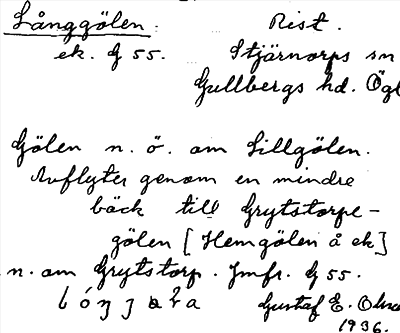 Långgölen. Rist.
ek. G 55. Stjärnorps sn
Gullbergs hd. Ögl
Gölen n. ö. om Sillgölen.
Avflyter genom en mindre
bäck till Grytstorpe-
gölen [Hemgölen å ek]
n. om Grytstorp. Jmfr. G 55.
Gustaf E. Olsso
1936.